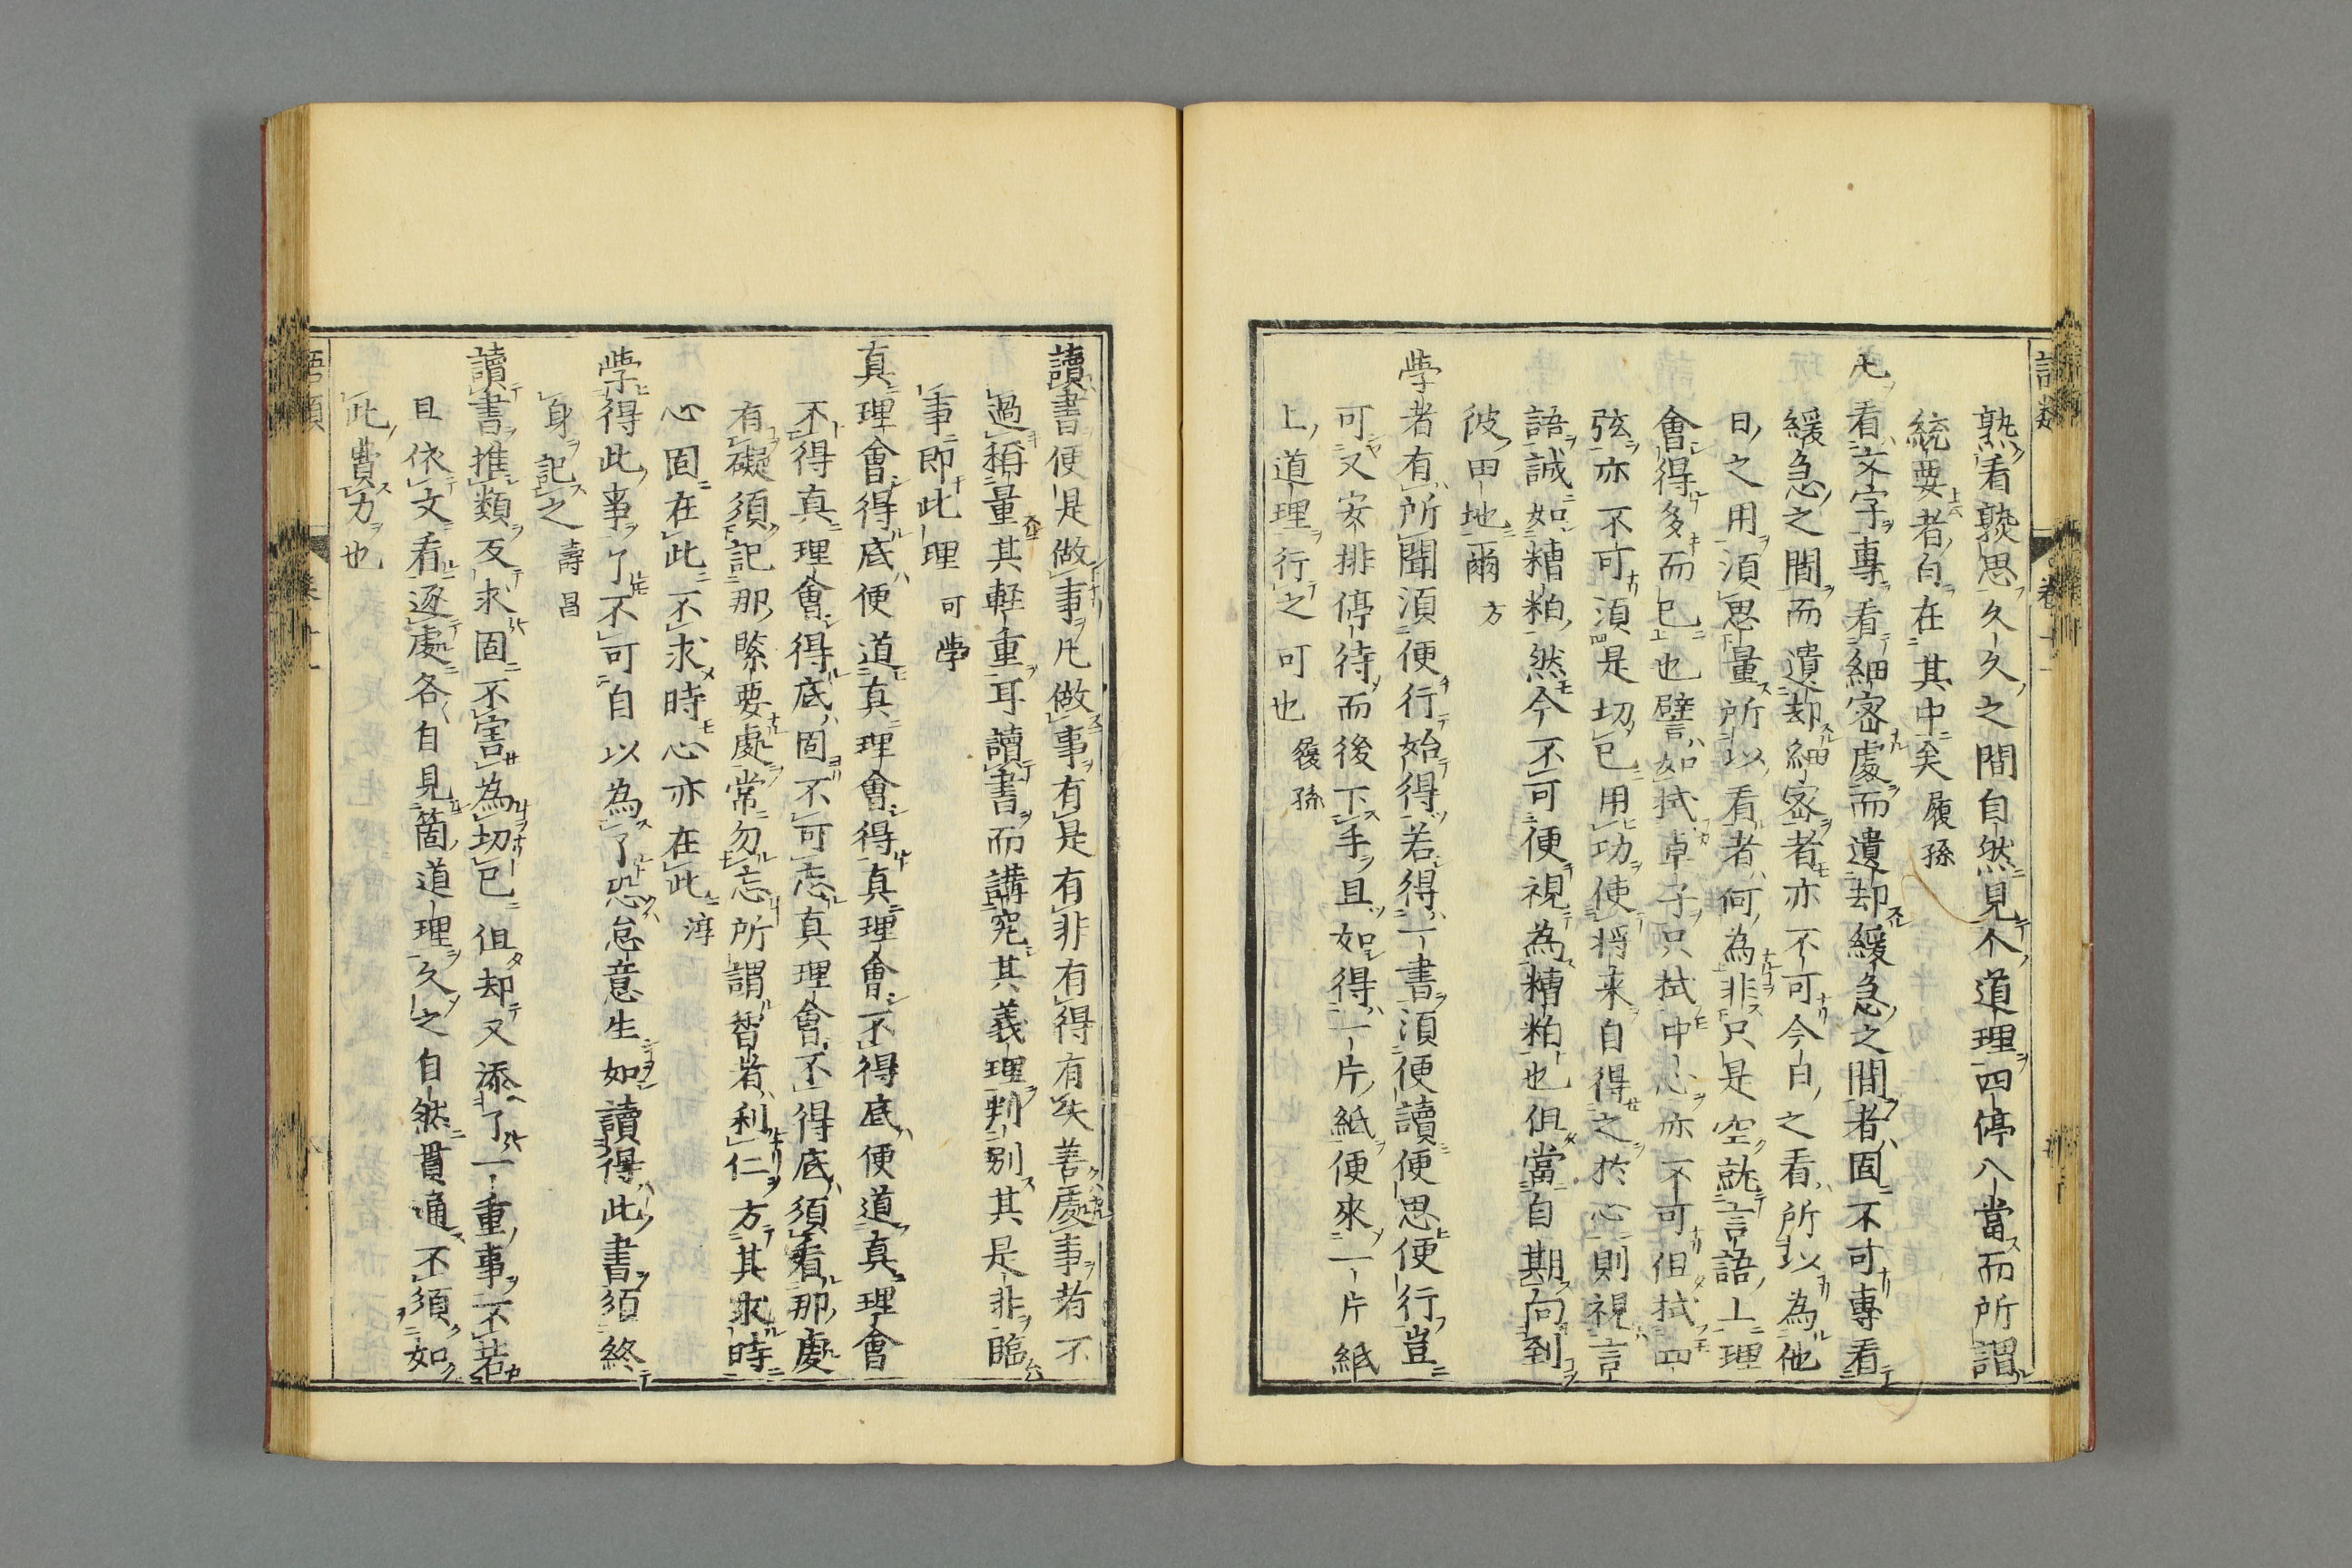 語類
卷十一
熟看熟思久久之間自然見个道理四停八當而所謂
統要者自在其中矣 履孫
凡看文字專看細密處而遺却緩急之間者固不可專看
緩急之間而遺却細密者亦不可今日之看所以為他
日之用須思量所以看者何為非只是空就言語上理
會得多而已也譬如拭卓子只拭中心亦不可但拭四
弦亦不可須是切已用功使將来自得之於心則視言
語誠如糟粕然今不可便視為糟粕也但當自期向到
彼田地爾 方
學者有所聞須便行始得若得一書須便讀便思便行豈
可又安排停待而後下手且如得一片紙便來一片紙
上道理行之可也 履孫
讀書便是做事凡做事有是有非有得有失善處事者不
過稱量其軽重耳讀書而講究其義理判别其是非臨
事即此理 可學
真理會得底便道真理會得真理會不得底便道真理會
不得真理會得底固不可忘真理會不得底須看那處
有礙須記那緊要處常勿忘所謂智者利仁方其求時
心固在此不求時心亦在此 淳
學得此事了不可自以為了恐怠意生如讀得此書須終
身記之 壽昌
讀書推類反求固不害為切已但却又添了一重事不若
且依文看逐處各自見箇道理久之自然貫通不須如
此費力也
語類
卷十一